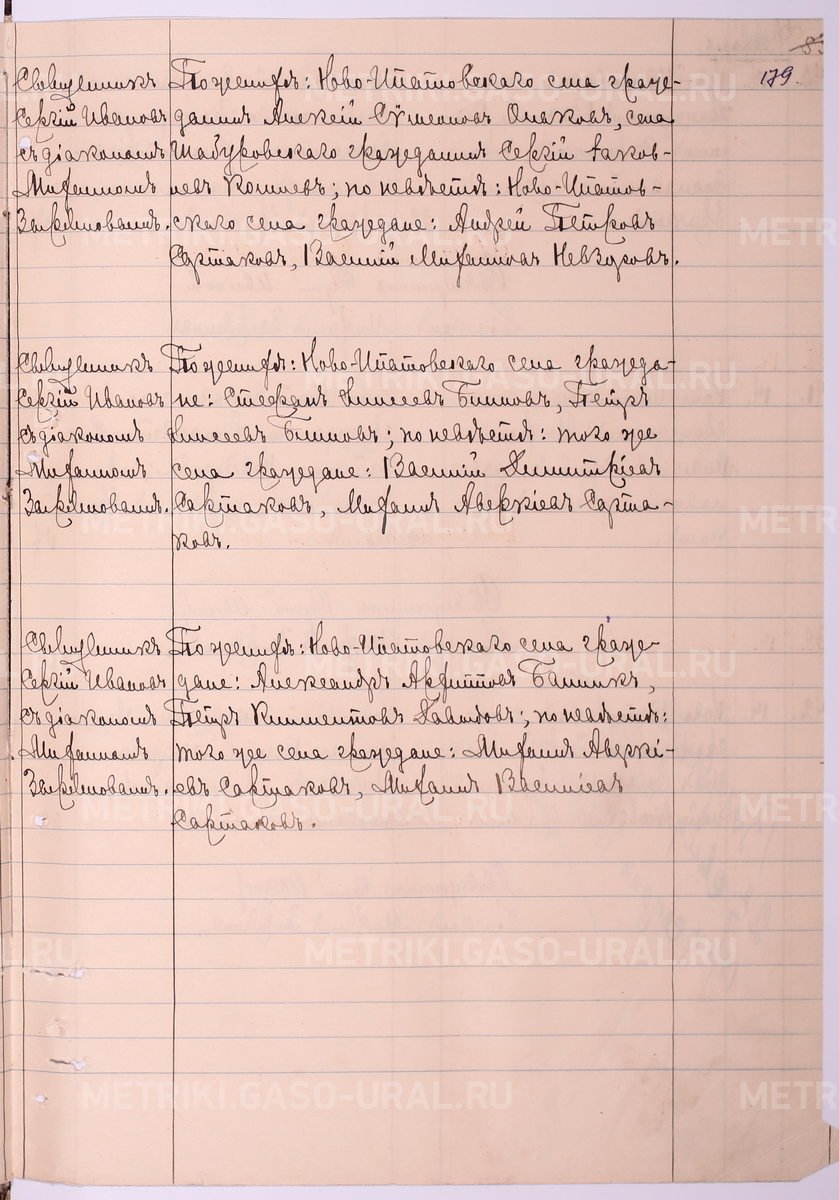 179.
Священникъ
Сергій Ивановъ
съ діакономъ
Михаиломъ
По женихѣ: Ново-Ипатовскаго села граж-
данинъ Алексій Сѵмеоновъ, села
Шабуровскаго гражданинъ Сергій Іаков-
левъ; по невѣстѣ: Ново-Ипатов-
скаго села граждане: Андрей Петровъ
Сартаковъ, Василій Михаиловъ Невзоровъ.
Священникъ
Сергій Ивановъ
съ діакономъ
Михаиломъ
По женихѣ: Ново-Ипатовскаго села гражда-
не: Стефанъ Елисеевъ, Петръ
Елисеевъ; по невѣстѣ: того же
села граждане: Василій Димитріевъ
Сартаковъ, Михаилъ Аверкіевъ Сарта-
ковъ.
Священникъ
Сергій Ивановъ
съ діакономъ
Михаиломъ
По женихѣ: Ново-Ипатовскаго села граж-
дане: Александръ,
Петръ Климентовъ; по невѣстѣ:
того же села граждане: Михаилъ Аверкі-
евъ Сартаковъ, Михаилъ Василіевъ
Сартаковъ.
METRIKI.GASO-URAL.RU